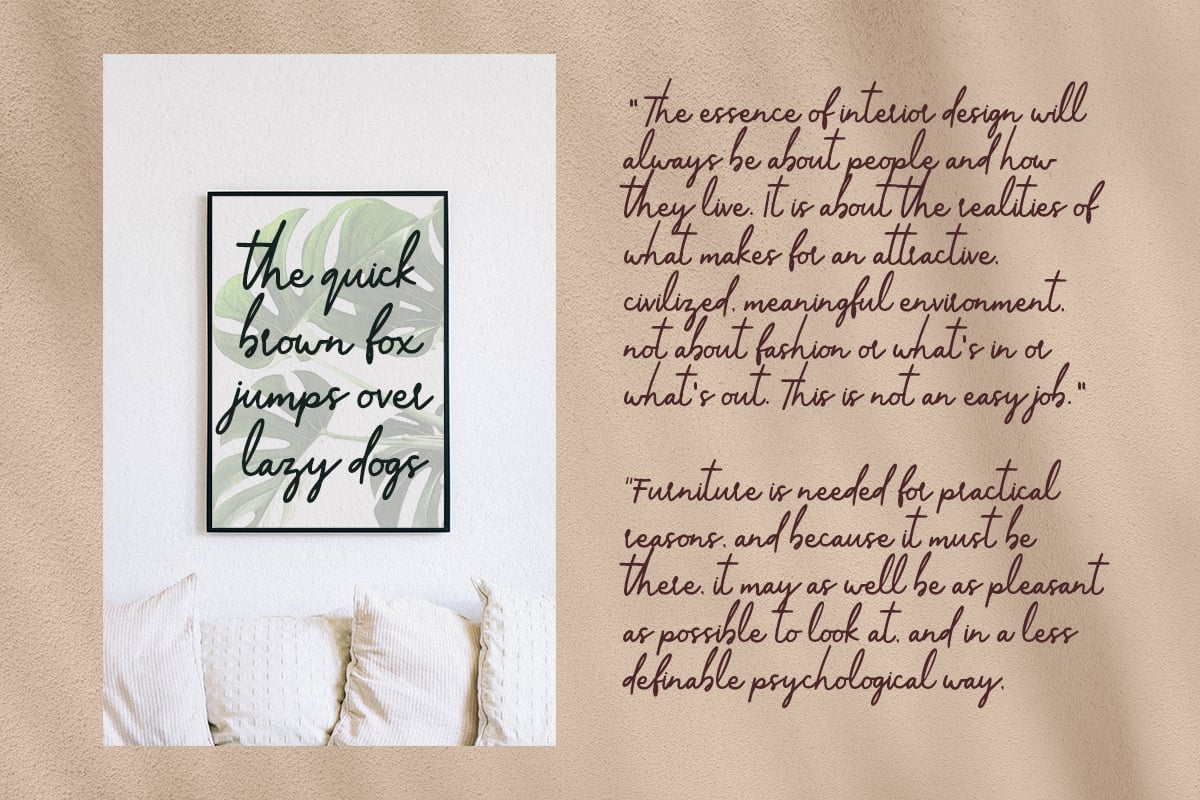 the quick
brown fox
jumps over
lazy dogs
"The essence of interior design will
always be about people and how
they live. It is about the realities of
what makes for an attractive,
civilized, meaningful environment,
not about fashion or what's in or
what's out. This is not an easy job."
"Furniture is needed for practical
reasons, and because it must be
there, it may as well be as pleasant
as possible to look at, and in a less
definable psychological way.